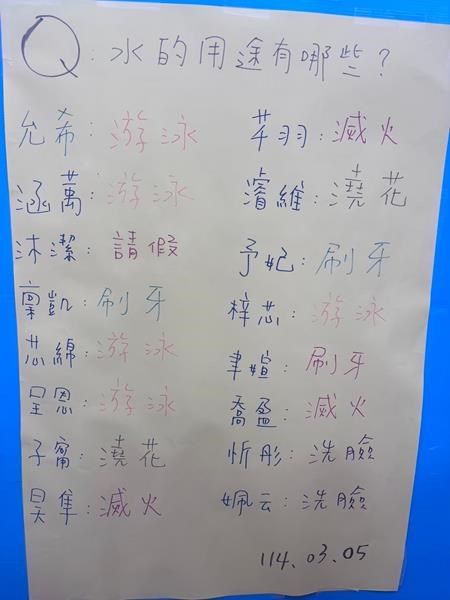 Q：水的用途有哪些？
允希：游泳
涵萬：游泳
沐潔：請假
稟凱：刷牙
芯綿：游泳
呈恩：游泳
子甯：澆花
昊隼：滅火
芊羽：滅火
濬維：澆花
予妃：刷牙
梓芯：游泳
聿媗：刷牙
喬盈：滅火
忻彤：洗臉
姵云：洗臉
114.03.05